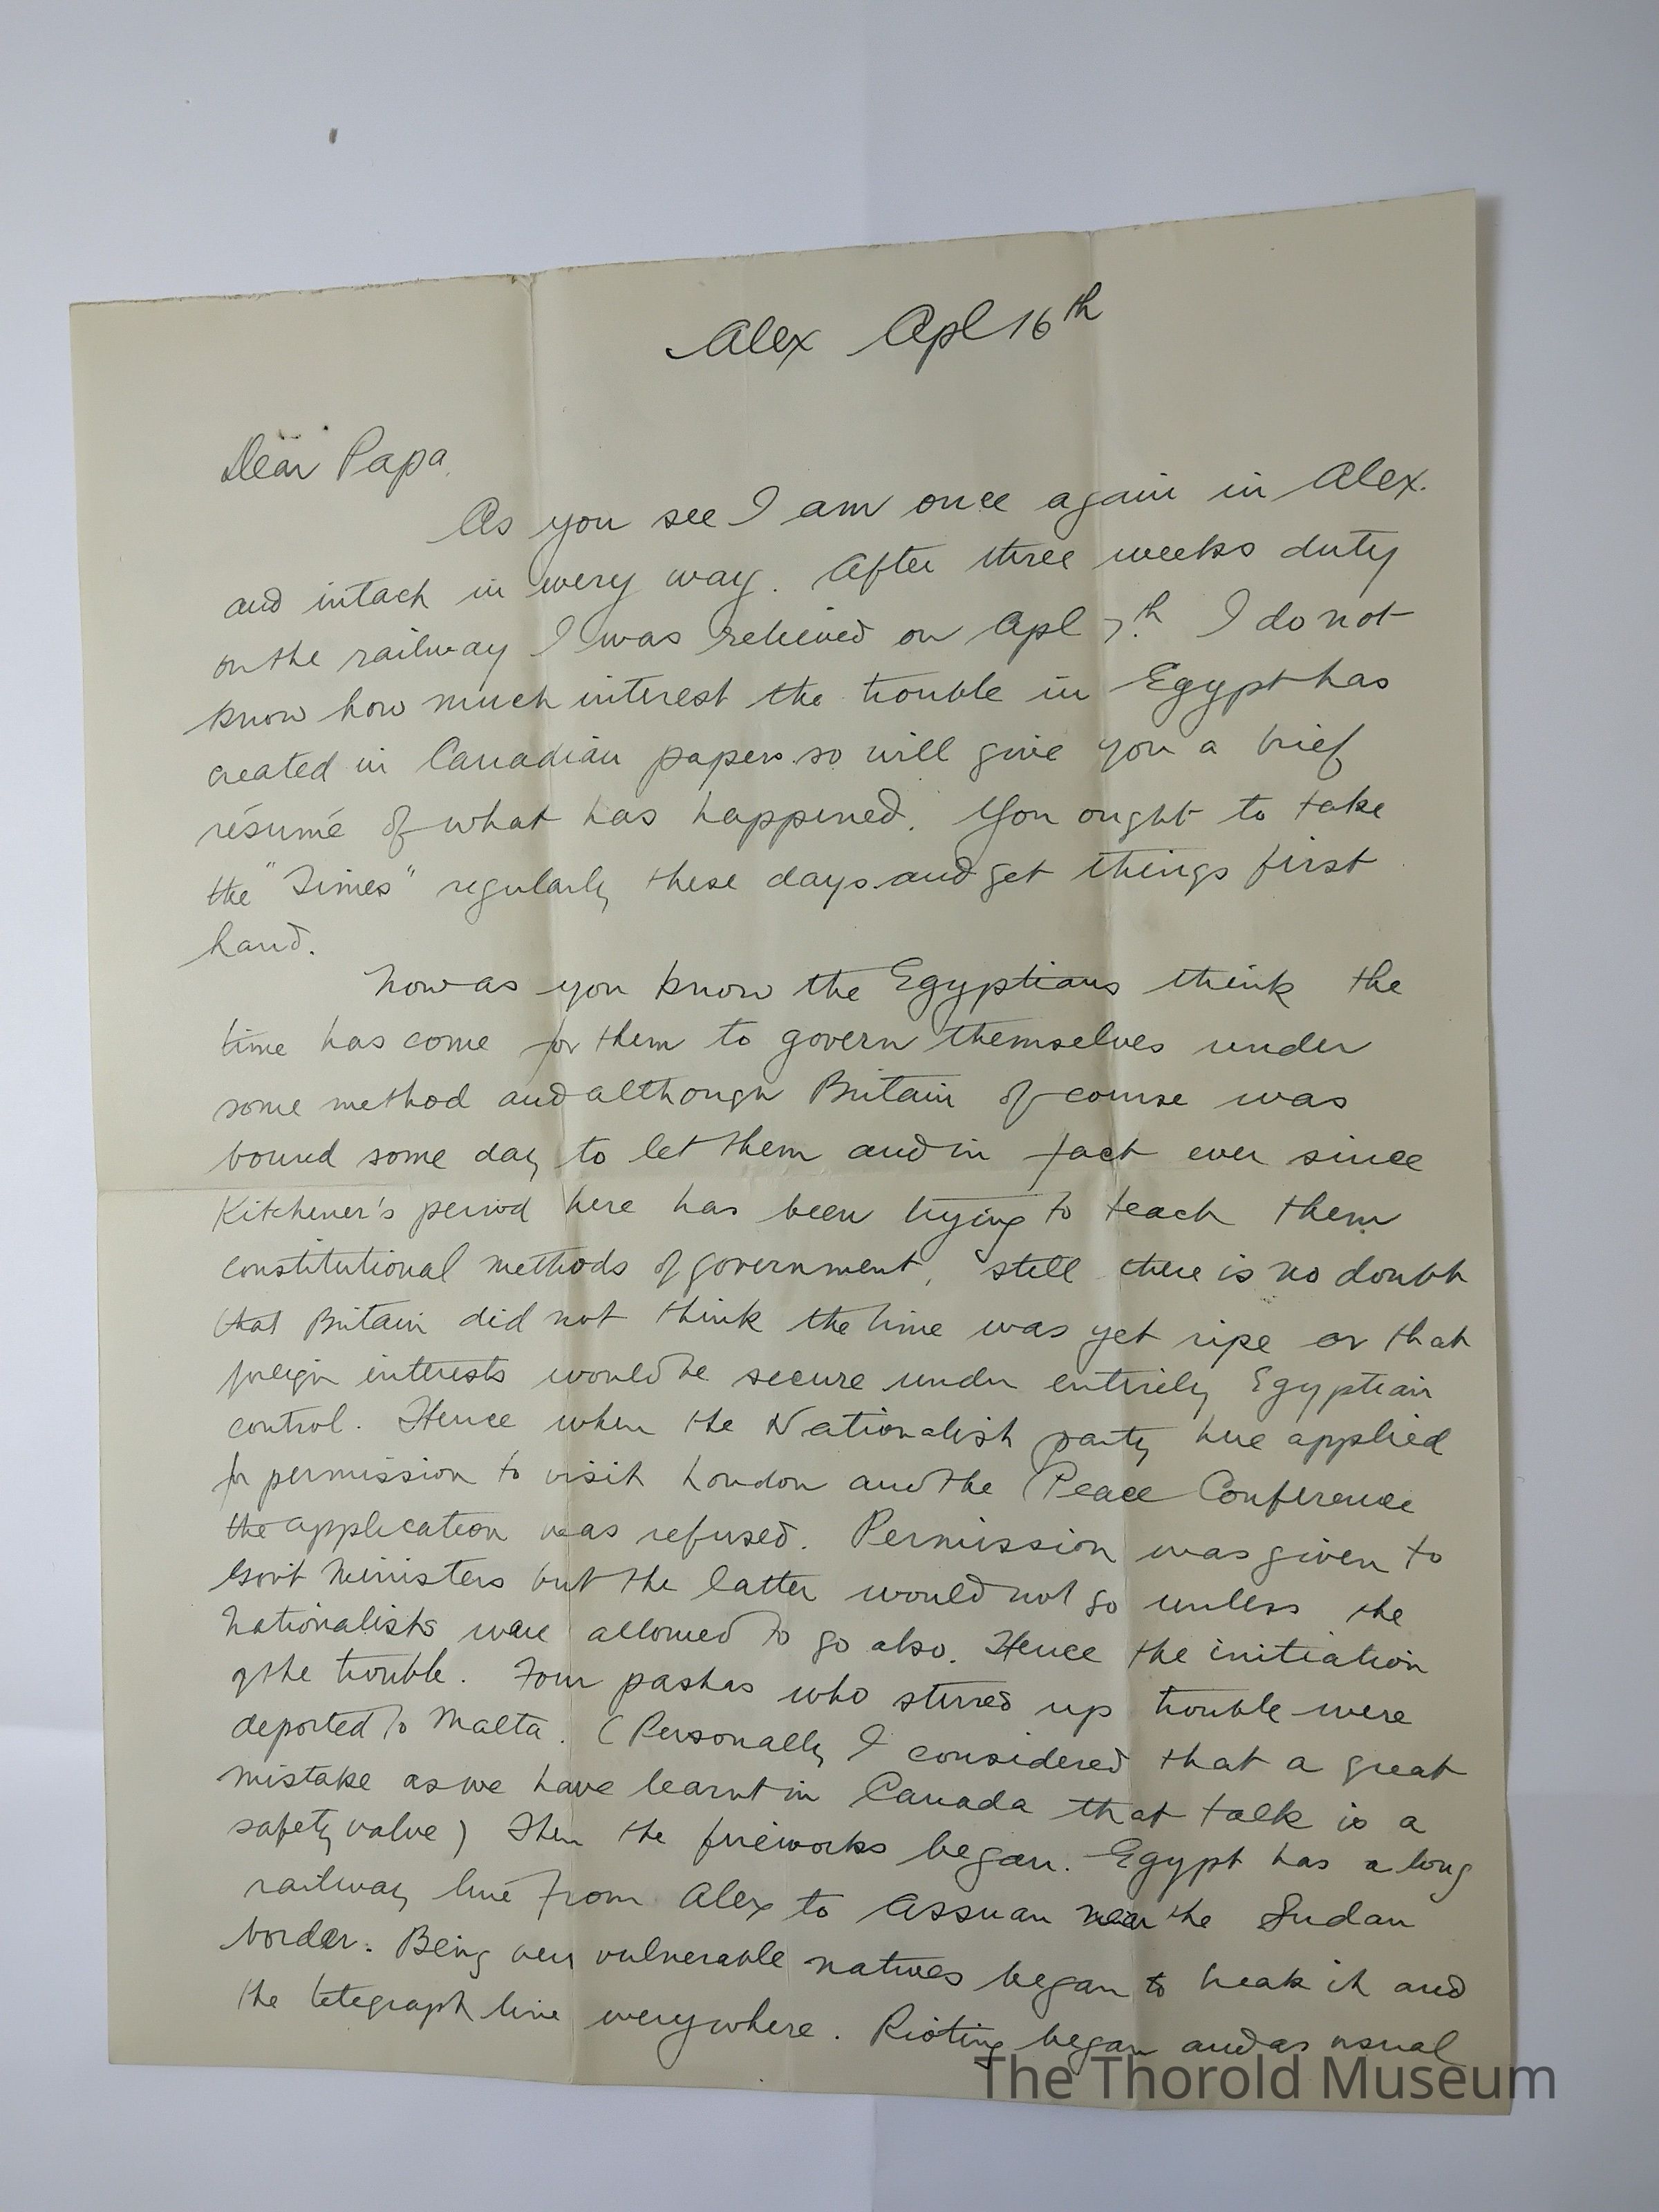 Alex Apl 16th
Dear Papa.
As you see I am once again in Alex.
and intach in every way. After three weeks duty
on the railway I was relieved on Apl 7th. I do not
know how much interest the trouble in Egypt has
created in Canadian papers so will give you a brief
résumé of what has happened. You ought to take
the "Times" regularly these days and get things first
hand.
Now as you know the Egyptians think the
time has come for them to govern themselves under
some method and although Britain of course was
bound some day to let them and in fact ever since
Kitchener's period here has been trying to teach them
constitutional methods of government, still there is no doubt
that Britain did not think the time was yet ripe or that
foreign interests would be secure under entirely Egyptian
control. Hence when the Nationalish party here applied
for permission to visit London and the Peace Conference
the application was refused. Permission was given to
Govt Ministers but the latter would not go unless the
Nationalists were allowed to go also. Hence the initiation
of the trouble. Four pashas who stirred up trouble were
deported to Malta. (Personally I considered that a great
mistake as we have learnt in Canada that talk is a
safety valve) Then the fireworks began. Egypt has a long
railway line from Alex to Assuan near the Sudan
border. Being very vulnerable natives began to break it and
the telegraph line everywhere. Rioting began and as usual
The Thorold Museum